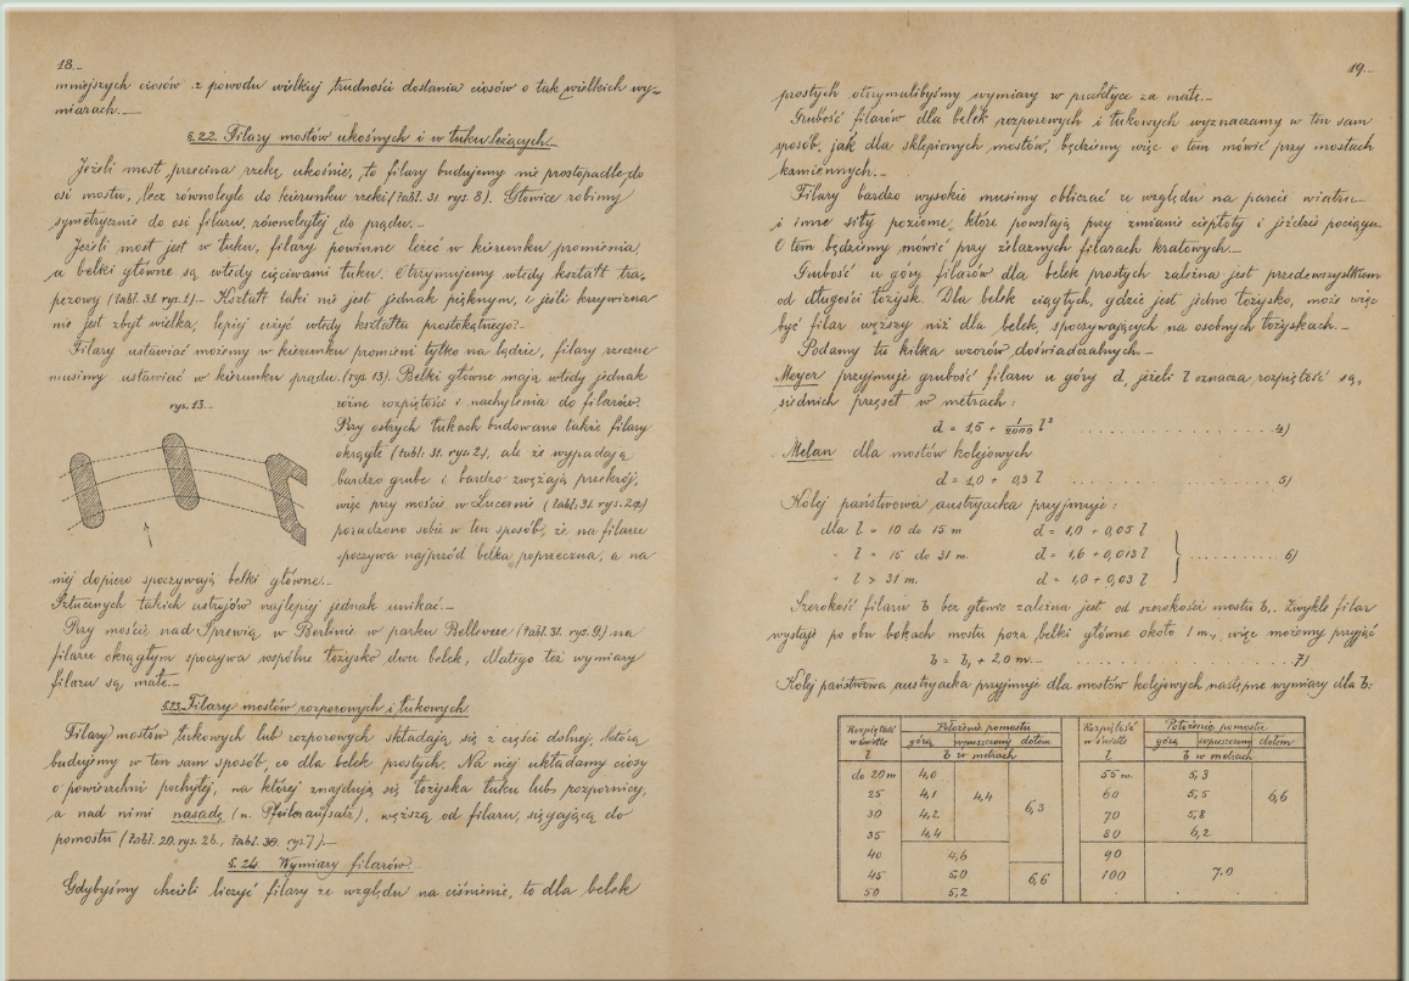 18.-
mniejszych ciosów z powodu wielkiej trudności dostania ciosów o tak wielkich wy-
miarach.-
§.22. Filary mostów ukośnych i w łuku leżących.-
Jeżeli most przecina rzekę ukośnie, to filary budujemy nie prostopadle do
osi mostu, lecz równolegle do kierunku rzeki (tabl. 31. rys. 8). Głowice robimy
symetrycznie do osi filaru, równoległej do prądu.-
Jeżeli most jest w łuku, filary powinne leżeć w kierunku promienia,
a belki główne są wtedy cięciwami łuku. Otrzymujemy wtedy kształt tra-
pezowy (tabl. 31. rys. 1).- Kształt taki nie jest jednak pięknym, i jeśli krzywizna
nie jest zbyt wielka, lepiej użyć wtedy kształtu prostokątnego.-
Filary ustawiać możemy w kierunku promieni tylko na lądzie, filary rzeczne
musimy ustawiać w kierunku prądu. (rys. 13). Belki główne mają wtedy jednak
rys. 13.-
różne rozpiętości i nachylenia do filarów.
Przy ostrych łukach budowano także filary
okrągłe (tabl. 31. rys. 2), ale że wypadają
bardzo grube i bardzo zwężają przekrój,
więc przy moście w Lucernie (tabl. 31. rys. 2a)
poradzono sobie w ten sposób, że na filarze
spoczywa najprzód belka poprzeczna, a na
niej dopiero spoczywają belki główne.-
Sztucznych takich ustrojów najlepiej jednak unikać.-
Przy moście nad Sprewią w Berlinie w parku Bellevue (tabl. 31. rys. 9.) na
filarze okrągłym spoczywa wspólne łożysko dwu belek, dlatego też wymiary
filaru są małe.-
§23. Filary mostów rozporowych i łukowych.
Filary mostów łukowych lub rozporowych składają się z części dolnej, którą
budujemy w ten sam sposób, co dla belek prostych. Na niej układamy ciosy
o powierzchni pochyłej, na której znajdują się łożyska łuku lub rozpornicy,
a nad nimi nasadę (n. Pfeileraufsatz), węższą od filaru, sięgającą do
pomostu (tabl. 20. rys. 26., tabl. 30. rys. 7).-
§. 24. Wymiary filarów.
Gdybyśmy chcieli liczyć filary ze względu na ciśnienie, to dla belek
19.-
prostych otrzymalibyśmy wymiary w praktyce za małe.-
Grubość filarów dla belek rozporowych i łukowych wyznaczamy w ten sam
sposób, jak dla sklepionych mostów, będziemy więc o tem mówić przy mostach
kamiennych.-
Filary bardzo wysokie musimy obliczać ze względu na parcie wiatru
i inne siły poziome, które powstają przy zmianie ciepłoty i jeździe pociągu.
O tem będziemy mówić przy żelaznych filarach kratowych.-
Grubość u góry filarów dla belek prostych zależna jest przedewszystkiem
od długości łożysk. Dla belek ciągłych, gdzie jest jedno łożysko, może więc
być filar węższy niż dla belek, spoczywających na osobnych łożyskach.-
Podamy tu kilka wzorów doświadczalnych.-
Meyer przyjmuje grubość filaru u góry d, jeżeli l oznacza rozpiętość są-
siednich przęseł w metrach:
d = 1,5 + 1/2000 l² ..........4)
Melan dla mostów kolejowych
d = 1,0 + 0,3 l ..........5)
Kolej państwowa austryacka przyjmuje:
dla l = 10 do 15 m d = 1,0 + 0,05 l
" l = 15 do 31 m. d = 1,6 + 0,013 l ..........6)
" l > 31 m. d = 1,0 + 0,03 l
Szerokość filaru b bez głowic zależna jest od szerokości mostu b₁. Zwykle filar
wystaje po obu bokach mostu poza belki główne około 1 m., więc możemy przyjąć
b = b₁ + 2,0 m.- ..........7)
Kolej państwowa austryacka przyjmuje dla mostów kolejowych następne wymiary dla b:
Rozpiętość Położenie pomostu Rozpiętość Położenie pomostu
w świetle górą wpuszczony dołem w świetle górą wpuszczony dołem
l b w metrach l b w metrach
do 20 m 4,0 55 m. 5,3
25 4,1 4,4 60 5,5 6,6
30 4,2 6,3 70 5,8
35 4,4 80 6,2
40 4,6 90
45 5,0 6,6 100 7.0
50 5,2 . . . .